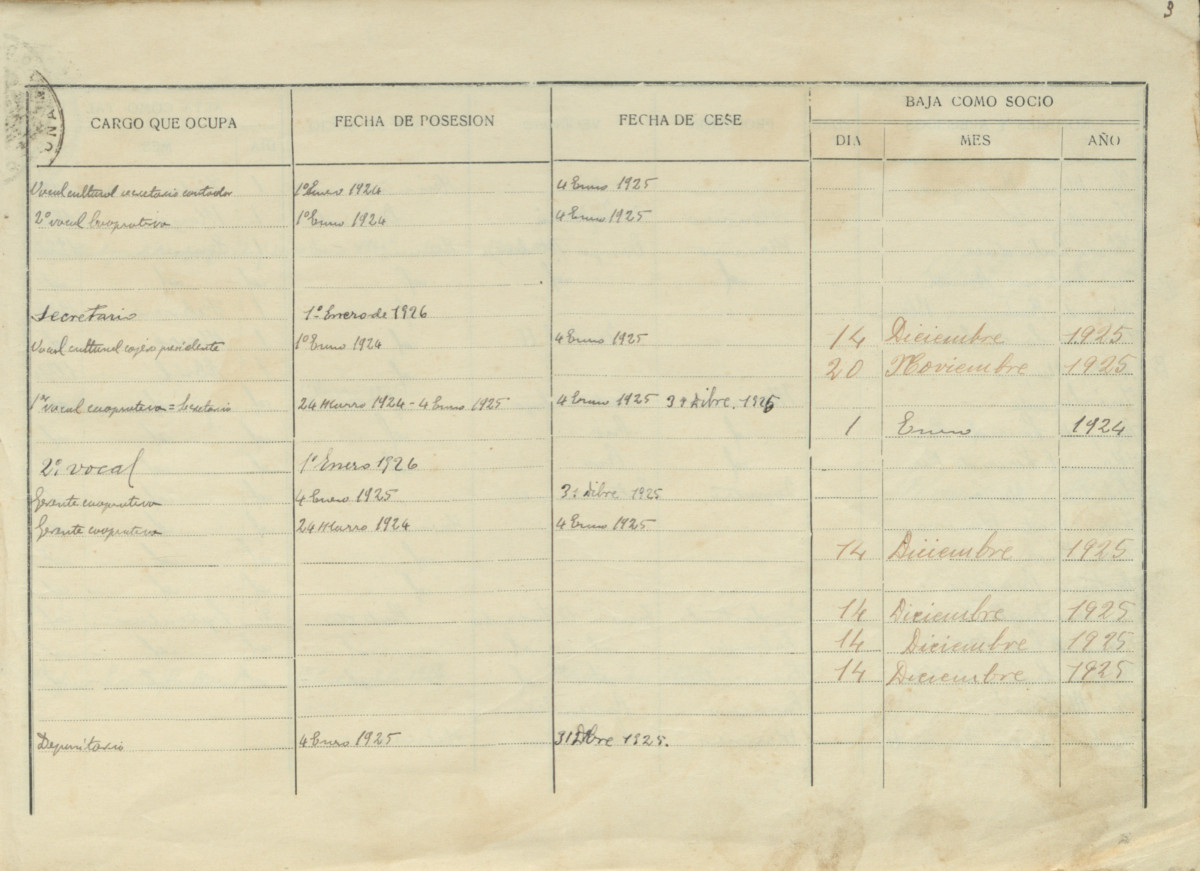 3
UNA
BAJA COMO SOCIO
CARGO QUE OCUPA FECHA DE POSESION FECHA DE CESE
DIA MES AÑO
Vocal cultural secretario contador 1º Enero 1924 4 Enero 1925
2º vocal Cooperativa 1º Enero 1924 4 Enero 1925
Secretario 1º Enero de 1926
Vocal cultural cajero presidente 1º Enero 1924 4 Enero 1925 14 Diciembre 1925
20 Noviembre 1925
1er vocal cooperativa = Secretario 24 Marzo 1924 - 4 Enero 1925 4 Enero 1925 Dibre. 1925
1 Enero 1924
2º vocal 1º Enero 1926
Gerente cooperativa 4 Enero 1925 Dibre 1925
Gerente cooperativa 24 Marzo 1924 4 Enero 1925
14 Diciembre 1925
14 Diciembre 1925
14 Diciembre 1925
14 Diciembre 1925
Depositario 4 Enero 1925 31 Dbre 1925.